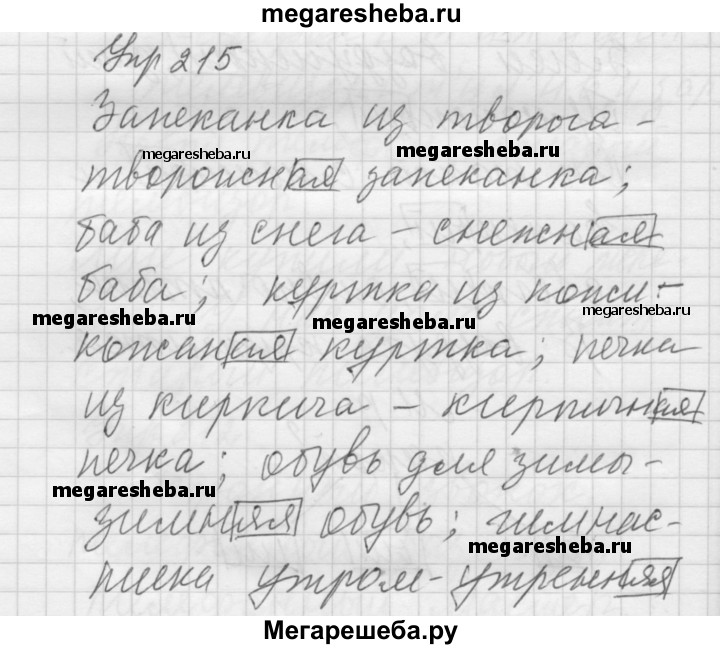 megaresheba.ru
Упр 215
Запеканка из творога -
megaresheba.ru
megaresheba.ru
творожная запеканка;
баба из снега - снежная
баба; куртка из кожи -
megaresheba.ru
megaresheba.ru
megaresheba.ru
кожаная куртка; печка
из кирпича - кирпичная
печка; обувь для зимы -
megaresheba.ru
зимняя обувь; гимнас-
megaresheba.ru
тика утром - утренняя
Мегарешеба.ру